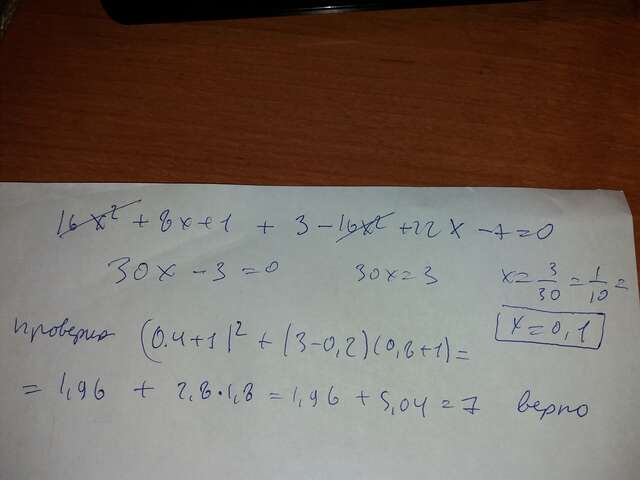 16x² + 8x+1 + 3 - 16x² + 22x - 7 = 0
30x - 3 = 0 30x = 3 x = 3/30 = 1/10 =
x = 0,1
проверка (0.4+1)² + (3-0,2)(0,8+1) =
= 1,96 + 2,8·1,8 = 1,96 + 5,04 = 7 верно